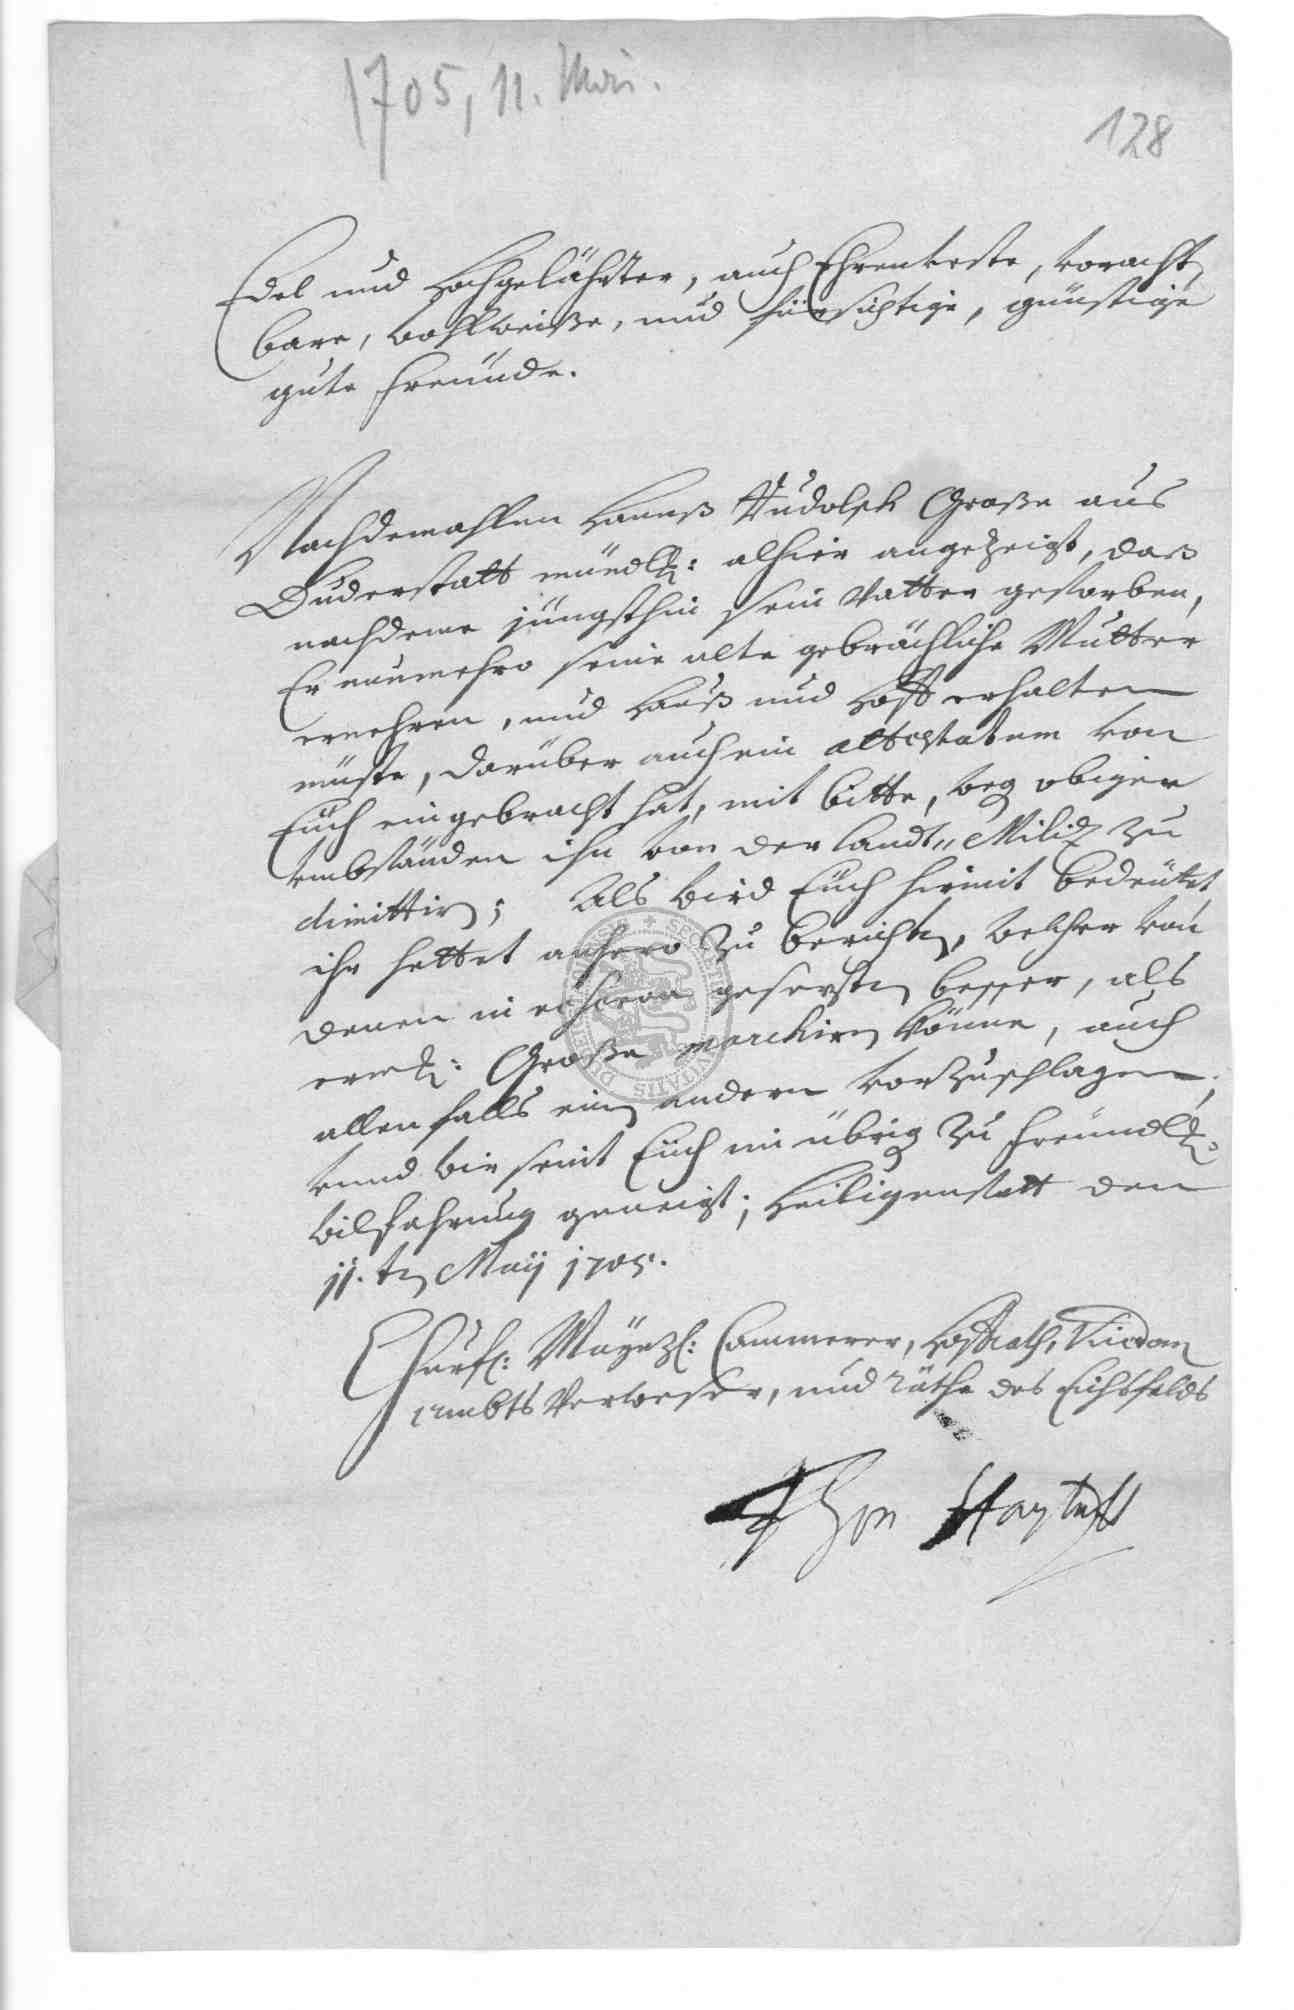 1705, 11. Mai.
128
Edel und Hochgelährter, auch Ehrenveste, voracht
bare, wohlweiße, und fürsichtige, günstige
gute Freünde.
Nachdemahlen Hannß Rudolph Große aus
Duderstatt mündl: alhier angezeigt, daß
nachdeme jüngsthin sein Vatter gestorben,
Er nunmehro seine alte gebrächliche Mutter
ernehren, und Hauß und Hoff erhalten
müste, darüber auch ein attestatum von
Euch eingebracht hat, mit bitte, beÿ obigen
umbständen ihn von der landt„ Militz zu
dimittirn; Als wird Euch hiemit bedeütet
ihr hettet anhero zu berichten, welcher von
denen in gesessten besser, als
erml: Große marchirn könne, auch
allenfalls ein andern vorzuschlagen,
unnd wir seint Euch im übrig zu freündl:
wilfahrung geneigt; Heiligenstatt den
11.ten Maÿ 1705.
Churf: Maÿntzl: Cammerer, Hoffrath, Vicedom
ambts Verweser, und Räthe des Eichsfelds
DUDERSTADIENSIS + SPECTABILIS CIVITATIS